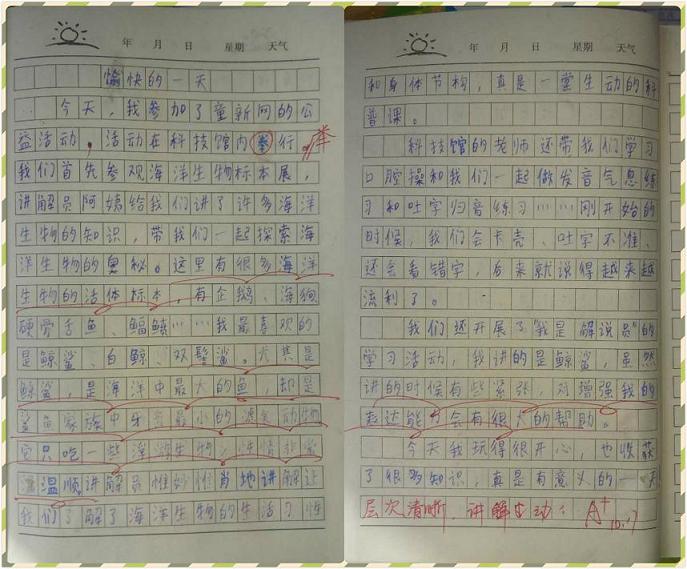 年 月 日 星期 天气
愉快的一天
今天,我参加了童新网的公
益活动,活动在科技馆内举行,举
我们首先参观海洋生物标本展,
讲解员阿姨给我们讲了许多海洋
生物的知识,带我们一起探索海
洋生物的奥秘。这里有很多海洋
生物的活体标本,有企鹅、海狗
硬骨舌鱼、蝠鲼……我最喜欢的
是鲸鲨、白鲸、双髻鲨。尤其是
鲸鲨,是海洋中最大的鱼,却是
鲨鱼家族中牙齿最小的滤食动物
它只吃一些浮游生物,性情非常
温顺讲解员惟妙惟肖地讲解让
我们了解了海洋生物的生活习性
年 月 日 星期 天气
和身体节构,真是一堂生动的科
普课。
科技馆的老师还带我们学习
口腔操和我们一起做发音气息练
习和吐字归音练习……刚开始的
时候,我们会卡壳、吐字不准、
还会看错字,后来就说得越来越
流利了。
我们还开展了"我是解说员"的
学习活动,我讲的是鲸鲨,虽然
讲的时候有些紧张,对增强我的
表达能力会有很大的帮助。
今天我玩得很开心,也收获
了很多知识,真是有意义的一天
层次清晰,讲解生动! A+ 10.17